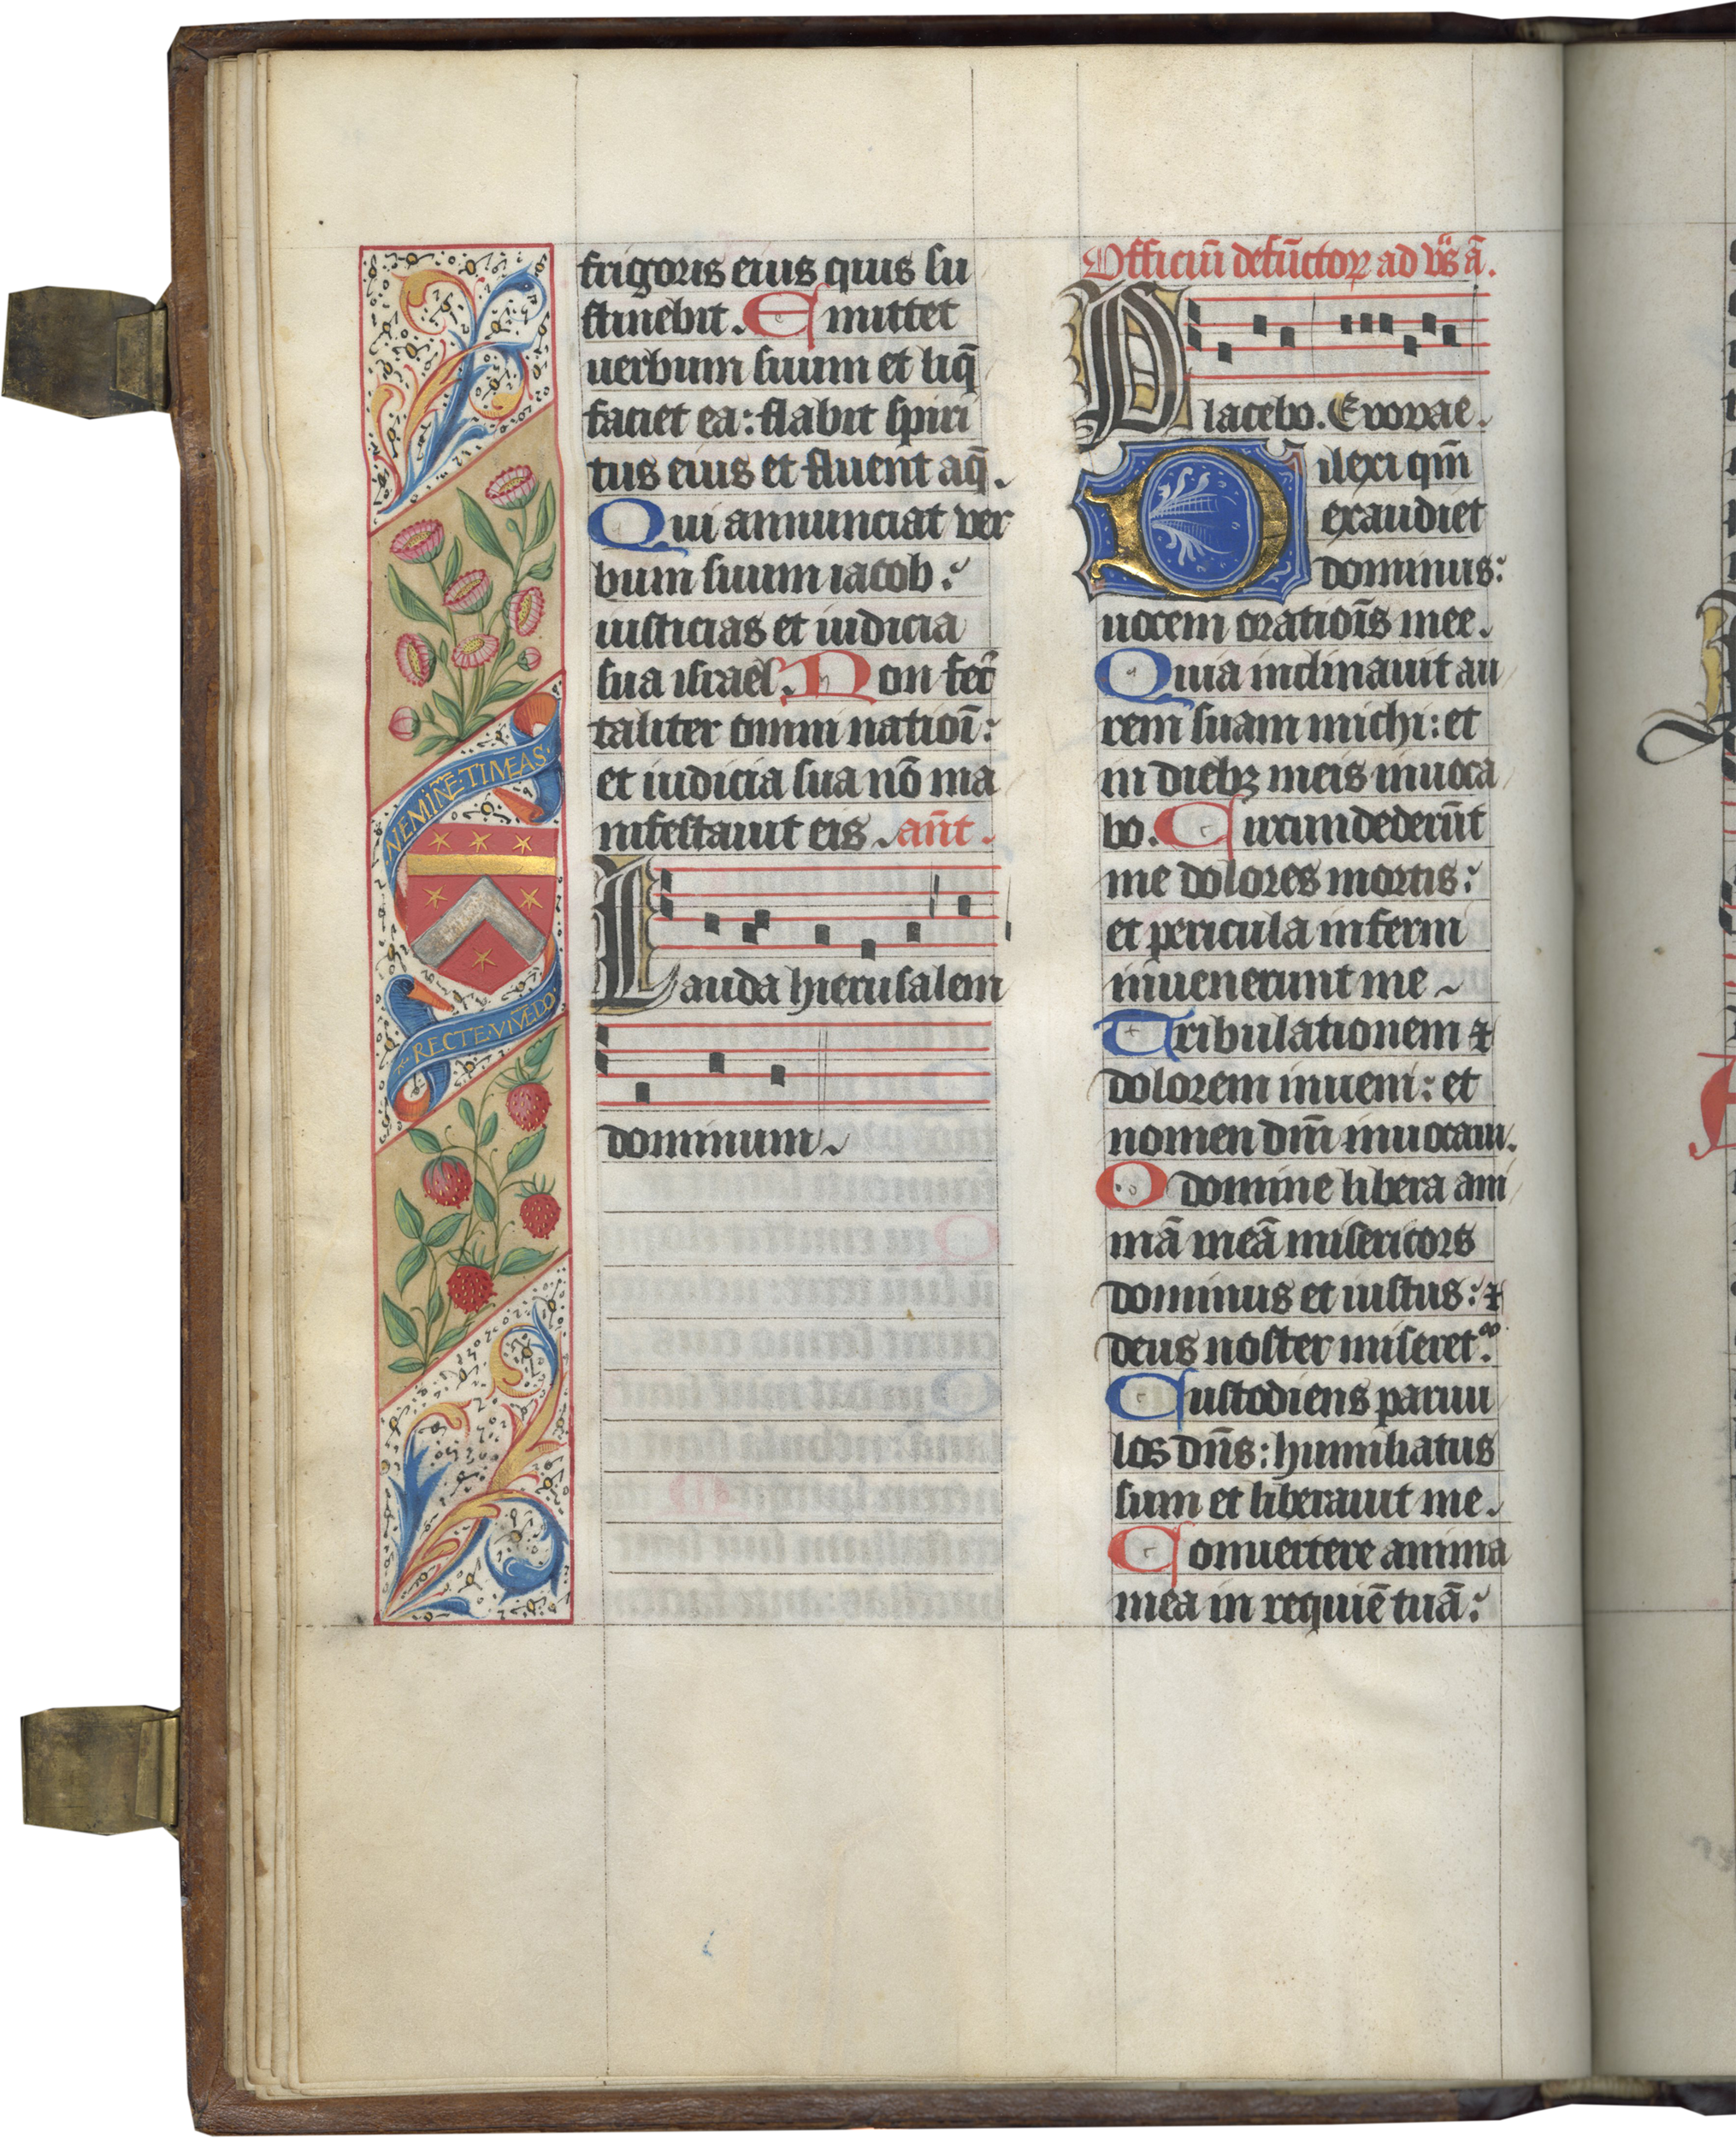 NEMINE͂·TIMEAS·
RECTE·VIVE͂DO·
frigoris eius quis su
stinebit. Emittet
uerbum suum et liq̄
faciet ea: flabit spiri
tus eius et fluent aq̄.
Qui annunciat ver
bum suum iacob:
iusticias et iudicia
sua israel. Non fec̄
taliter omni natioī:
et iudicia sua nō ma
nifestauit eis. ant̄.
Lauda hierusalem
dominum
Officiū defūctoꝝ ad vs̄ ā.
Placebo. Evovae.
Dilexi qm̄
exaudiet
dominus:
uocem oratiōis mee.
Quia inclinauit au
rem suam michi: et
in diebꝫ meis inuoca
bo. Circundederūt
me dolores mortis:
et pericula inferni
inuenerunt me
Tribulationem ⁊
dolorem inueni: et
nomen dm̄i inuocaui.
O domine libera ani
mā meā misericors
dominus et iustus: ⁊
deus noster miseret᷑.
Custodiens paruu
los dn̄s: humiliatus
sum et liberauit me.
Conuertere anima
mea in requiē tuā: